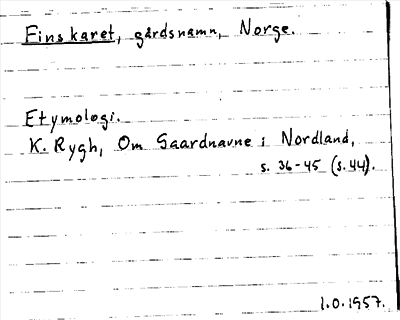 Finskaret, gårdsnamn, Norge.
Etymologi.
K. Rygh, Om Gaardnavne i Nordland,
s. 36-45 (s. 44).
I.O. 1957.